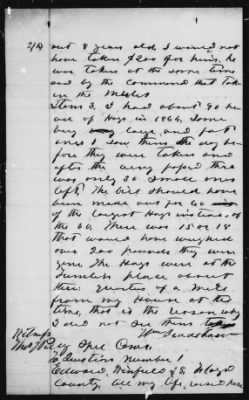 not 8 years old, I would not
have taken $200 for him. he
was taken at the same time
and by the command that took
the Mules
Item 3, I had about 90 he
ad of Hogs in 1864. Some
very large and fat
ones I saw them the day be-
fore they were taken and
after the army passed there
was only 30 small ones
left. The bill should have
been made out for 60
of the largest Hogs instead of
the 60. There was 15 or 18
that would have weighed
over 200 pounds they were
gone. The Hogs were at the
place about
three quarters of a mile
from my House at the
time, that is the reason why
I did not see them
Witness
Spec Com
Question Number 1
Edward
County all my life, until